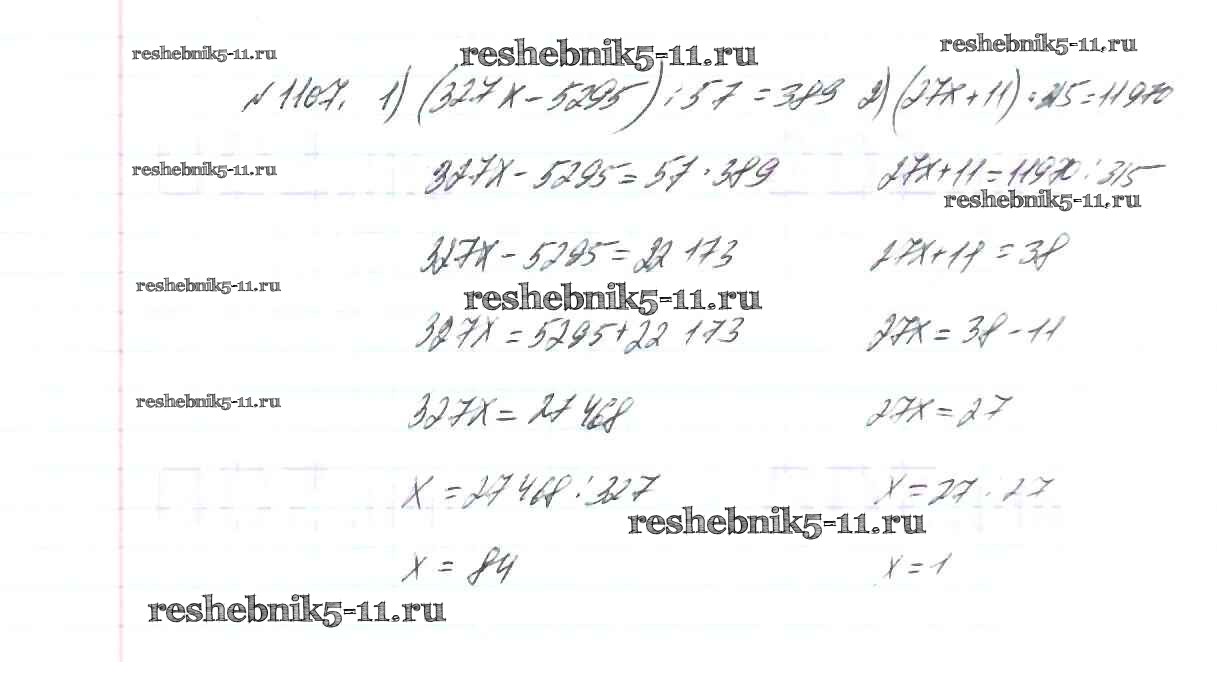 reshebnik5-11.ru reshebnik5-11.ru reshebnik5-11.ru
№1107. 1) (327x-5295):57=389 2) (27x+11)·315=11970
reshebnik5-11.ru 327x-5295=57·389 27x+11=11970:315
reshebnik5-11.ru
327x-5295=22 173 27x+11=38
reshebnik5-11.ru reshebnik5-11.ru
327x=5295+22 173 27x=38-11
reshebnik5-11.ru 327x=27 468 27x=27
x=27 468:327 x=27:27
reshebnik5-11.ru
x=84 x=1
reshebnik5-11.ru